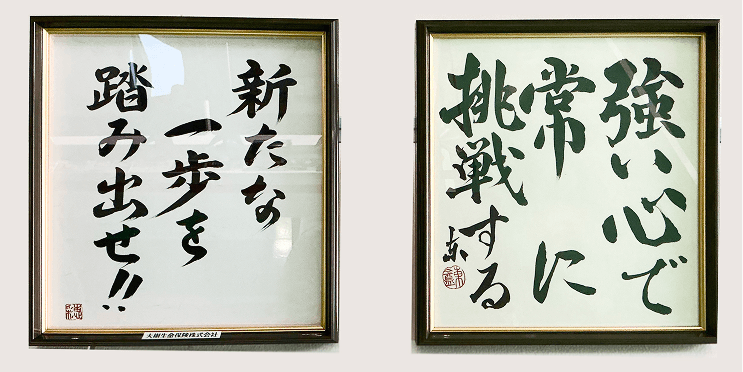 新たな
一歩を
踏み出せ!!
大樹生命保険株式会社
強い心で
常に
挑戦する